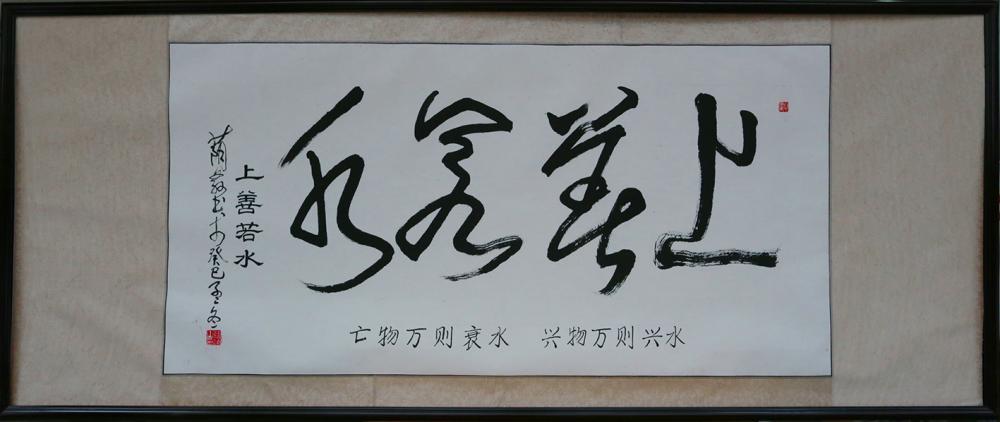 上善若水
水兴则万物兴 水衰则万物亡
上善若水
癸巳孟冬